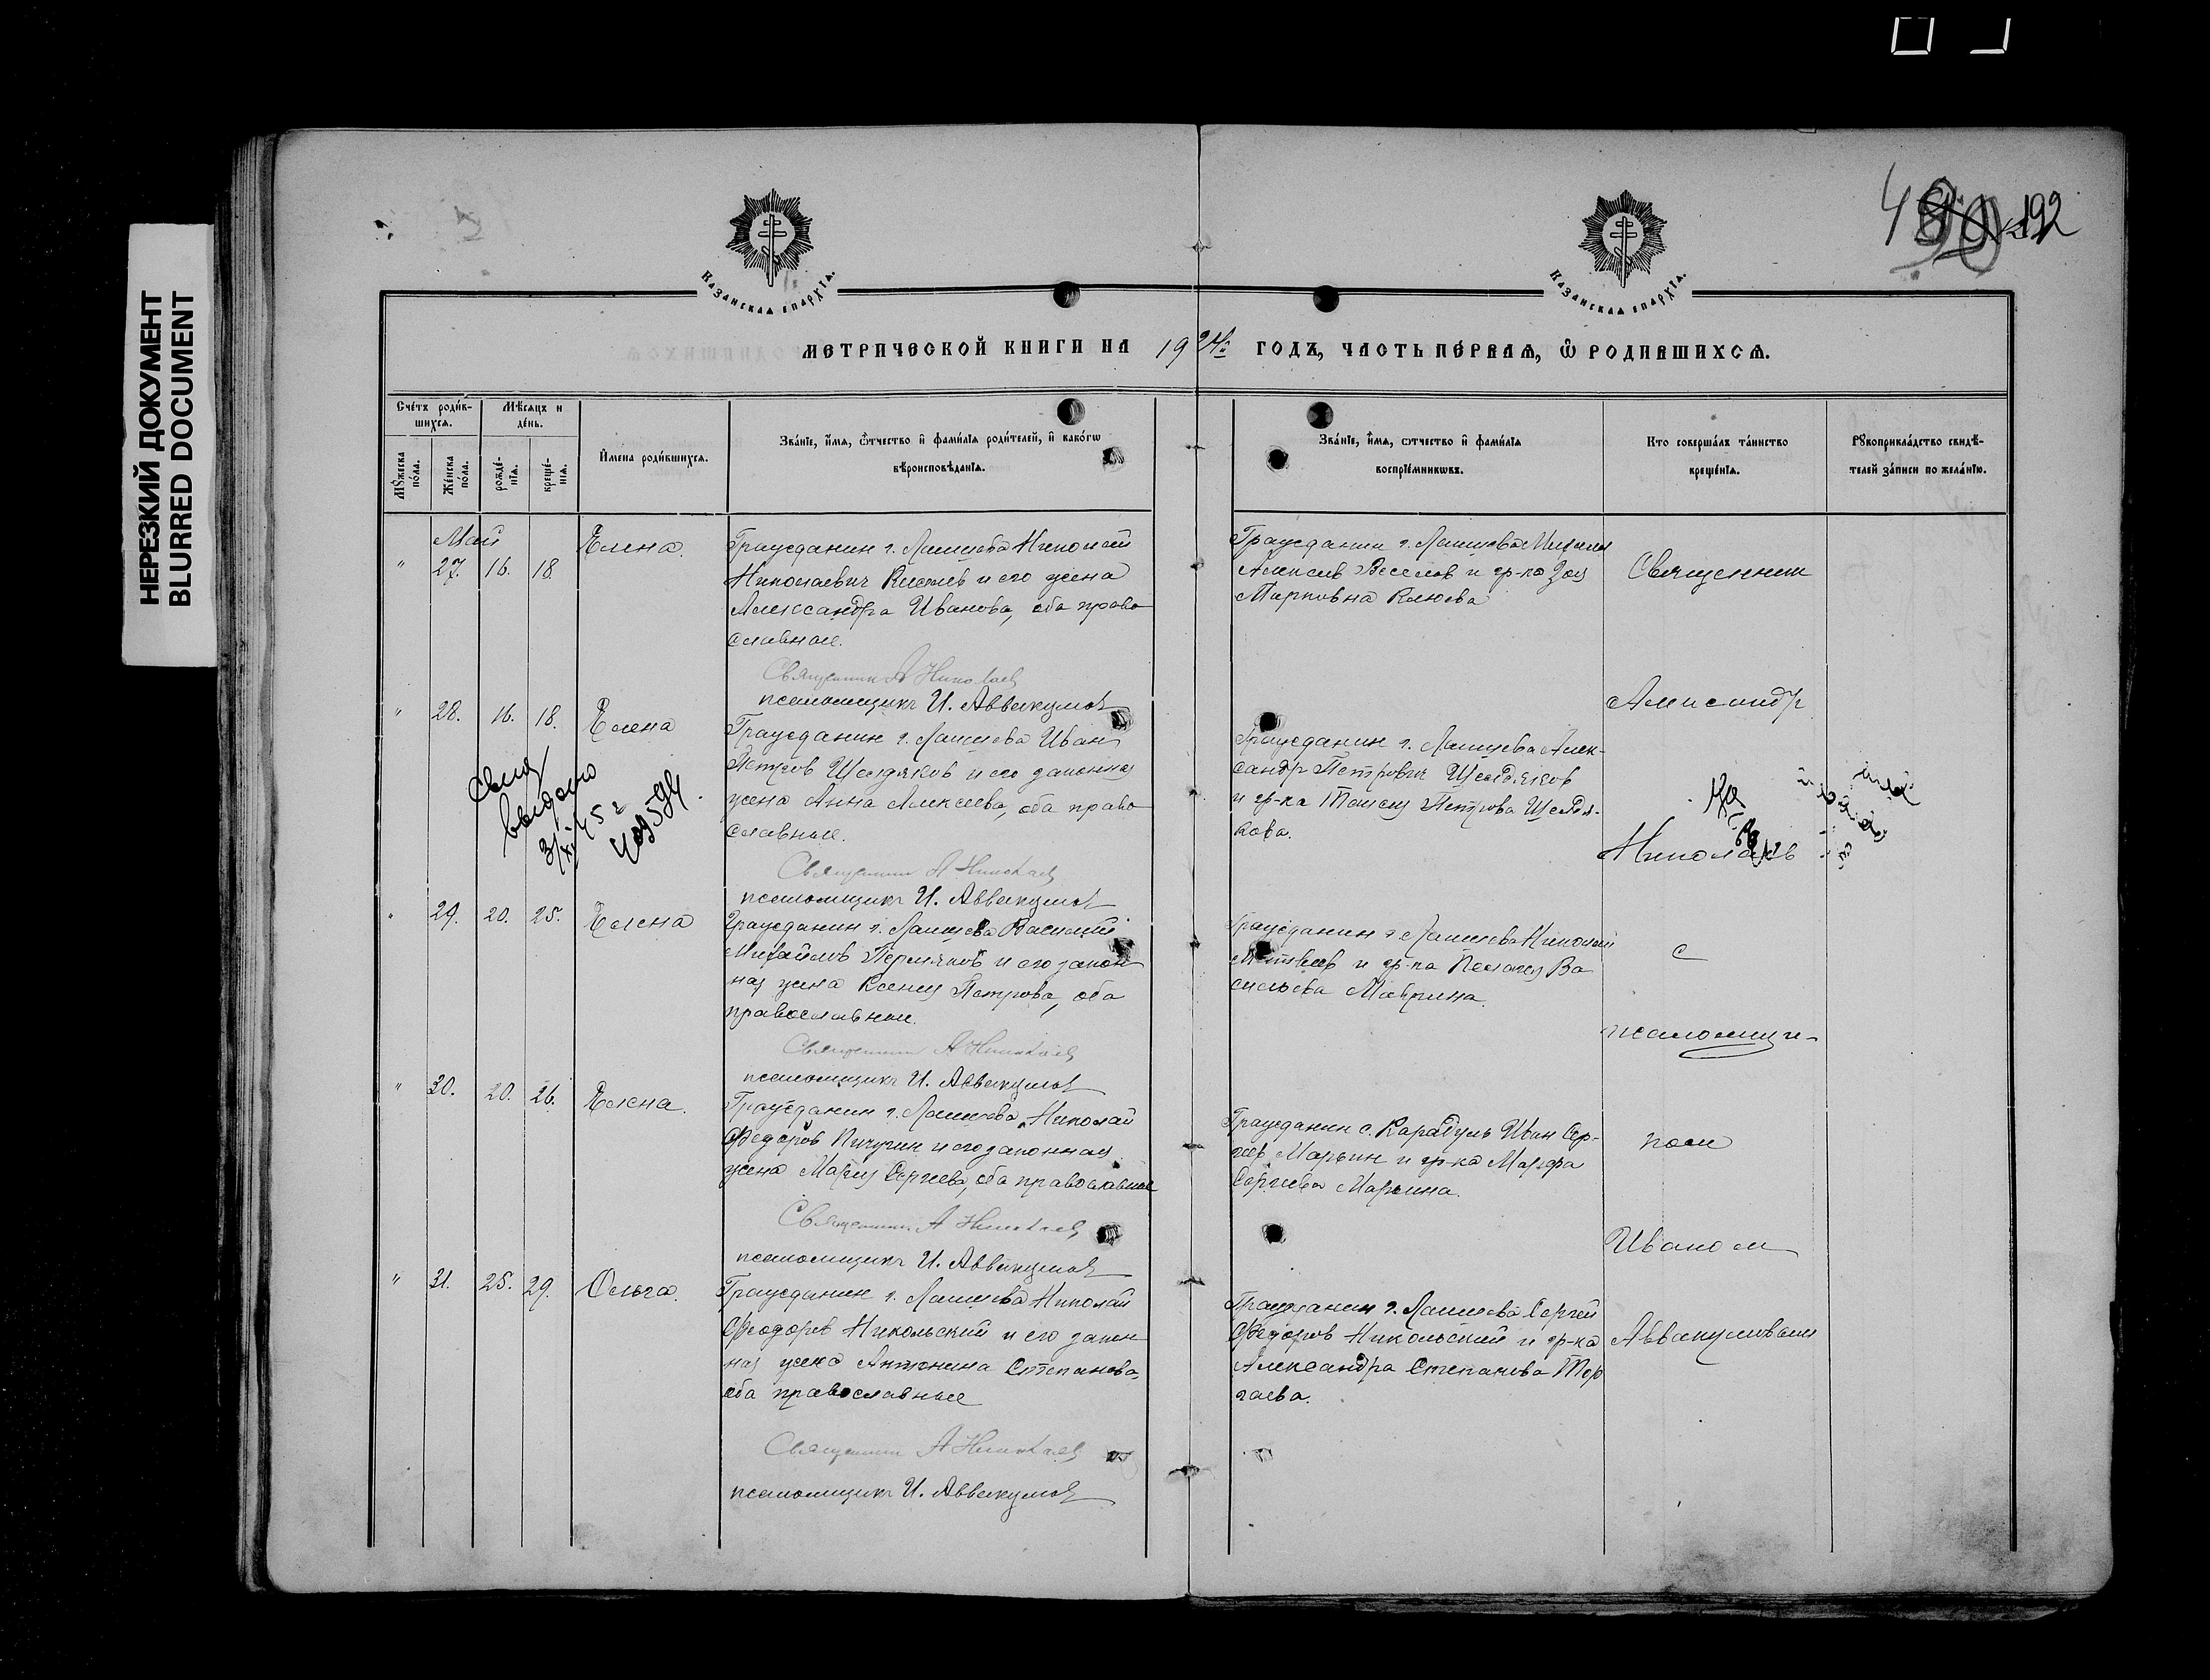 НЕРЕЗКИЙ ДОКУМЕНТ
BLURRED DOCUMENT
192
Казанская епархїа.
Казанская епархїа.
МЕТРИЧЕСКОЙ КНИГИ НА 1924й ГОДЪ, ЧАСТЬ ПЕРВАЯ, Ѿ РОДИВШИХСЯ.
Сче́тъ роди́в-
шихся.
Мѣ́сяцъ и
де́нь.
Мꙋ́жеска
по́ла.
Же́нска
по́ла.
рожде́-
нїя.
креще́-
нїя.
И҆мена роди́вшихся.
Зва́нїе, и҆́мя, ѻ҆́тчество и҆ фами́лїя роди́телей, и҆ како́гѡ
вѣроисповѣ́данїя.
Зва́нїе, и҆́мя, ѻ҆тчество и҆ фами́лїя
воспрїе́мникѡвъ.
Кто соверша́лъ та́инство
креще́нїя.
Рꙋкоприкла́дство свидѣ́-
телей за́писи по жела́нїю.
Май
" 27. 16. 18. Елена.
Гражданин г. Лаишева Николай
Николаевич Киселев и его жена
Александра Иванова, оба право
славные.
Священник А Николаев
псаломщикъ И. Аввакумов
Гражданин г. Лаишева Михаил
Алексеев Веселов и гр-ка Зоя
Марковна Клюева
Священник
" 28. 16. 18. Елена
Гражданин г. Лаишева Иван
Петров Щелдяков и его законная
жена Анна Алексеева, оба право
славные.
Священник А Николаев
псаломщикъ И. Аввакумов
Гражданин г. Лаишева Алек-
сандр Петрович Щелдяков
и гр-ка Таисия Петрова Щелдя-
кова.
Александр
Николаев
Свид
выдано
" 29. 20. 25. Елена
Гражданин г. Лаишева Василий
Михайлов Пермяков и его закон
ная жена Ксения Петрова, оба
православные.
Священник А Николаев
псаломщикъ И. Аввакумов
Гражданин г. Лаишева Николай
Матвеев и гр-ка Пелагея Ва
сильева Маврина.
с
псаломщи-
" 30. 20. 26. Елена.
Гражданин г. Лаишева Николай
Федоров Пичугин и его законная
жена Мария Сергеева, оба православные
Священник А Николаев
псаломщикъ И. Аввакумов
Гражданин с. Карадуль Иван Сер-
геев Марьин и гр-ка Марфа
Сергеева Марьина.
ком
Иваном
" 31. 25. 29. Ольга.
Гражданин г. Лаишева Николай
Феодоров Никольский и его закон
ная жена Антонина Степанова,
оба православные
Священник А Николаев
псаломщикъ И. Аввакумов
Гражданин г. Лаишева Сергей
Федоров Никольский и гр-ка
Александра Степанова Тор
гаева.
Аввакумовым